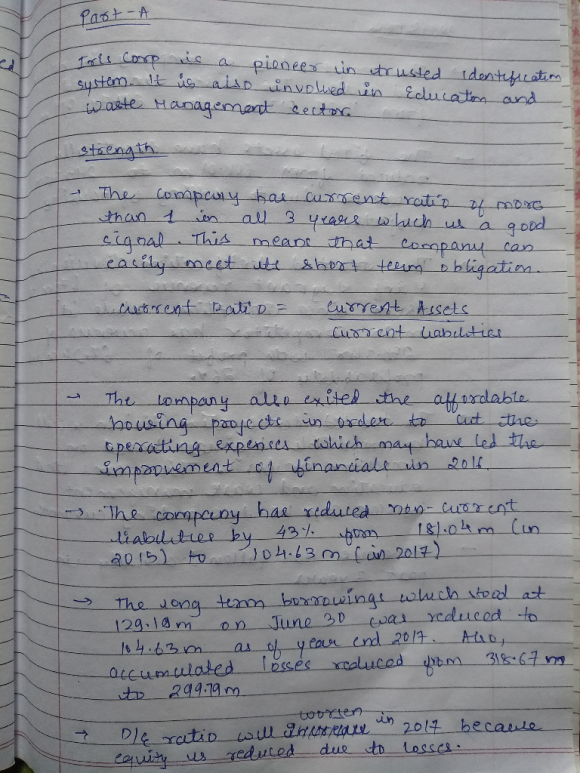 Part-A
Iris Corp is a pioneer in trusted identification
system. It is also involved in Education and
Waste Management sector.
Strength
→ The company has current ratio of more
than 1 in all 3 years which is a good
signal. This means that company can
easily meet its short term obligation.
Current Ratio = Current Assets
Current liabilities
→ The company also exited the affordable
housing projects in order to cut the
operating expenses which may have led the
improvement of financials in 2016.
→ The company has reduced non-current
liabilities by 43% from 181.04m (in
2015) to 104.63m (in 2017)
→ The long term borrowings which stood at
129.19m on June 30 was reduced to
104.63m as of year end 2017. Also,
accumulated losses reduced from 318.67m
to 299.79m
→ D/E ratio will worsen in 2017 because
equity is reduced due to losses.